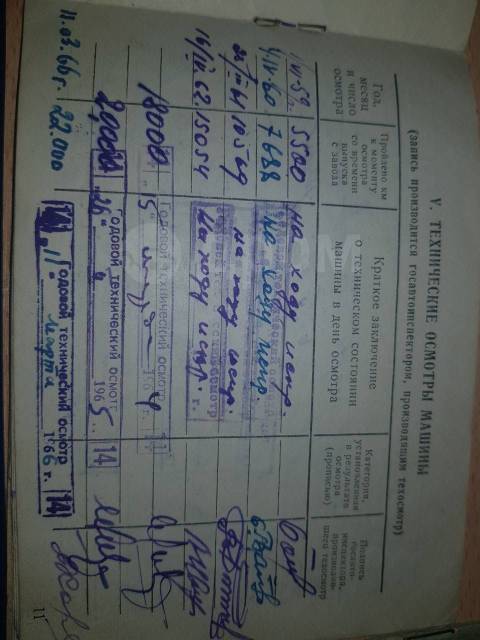 V. ТЕХНИЧЕСКИЕ ОСМОТРЫ МАШИНЫ
(запись производится госавтоинспектором, производящим техосмотр)
Год, месяц и число осмотра
Пройдено км к моменту осмотра со времени выпуска с завода
Краткое заключение о техническом состоянии машины в день осмотра
Категория, установленная в результате осмотра (прописью)
Подпись госавтоинспектора, производившего техосмотр
5500 на ходу испр.
7688 на ходу испр.
10569 на ходу испр.
62. 15054 На ходу испр.
18000 Годовой технический осмотр
"5" 1964
20000 Годовой технический осмотр
"26" 4 1965 14
11.03.66г. 22.000 14 Годовой технический осмотр
"11" марта 1966 г. 14
11